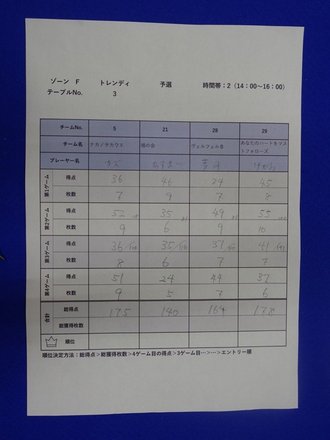 ゾーン F トレンディ 予選 時間帯：2（14：00～16：00）
テーブルNo. 3
チームNo. 5 21 28 29
チーム名 ナカノサカウエ 陽の会 ヴェルフェルB あなたのハートをマストフォローズ
プレーヤー名
第1ゲーム 得点 36 46 24 45
枚数 7 9 7 8
第2ゲーム 得点 52 35 49 55
枚数 9 6 9 10
第3ゲーム 得点 36 35 41
枚数 8 6 7 7
第4ゲーム 得点 51 24 44 37
枚数 9 5 7 6
合計 総得点 175 140 164 178
総獲得枚数
順位
順位決定方法：総得点＞総獲得枚数＞4ゲーム目の得点＞3ゲーム目…＞…＞エントリー順